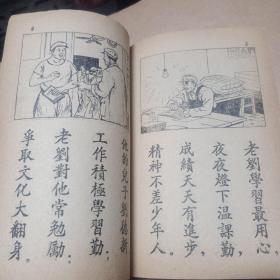 老劉學習最用心，
夜夜燈下温課勤，
成績天天有進步，
精神不差少年人。
他的兒子劉德新，
工作積極學習勤；
老劉對他常勉勵：
爭取文化大翻身。